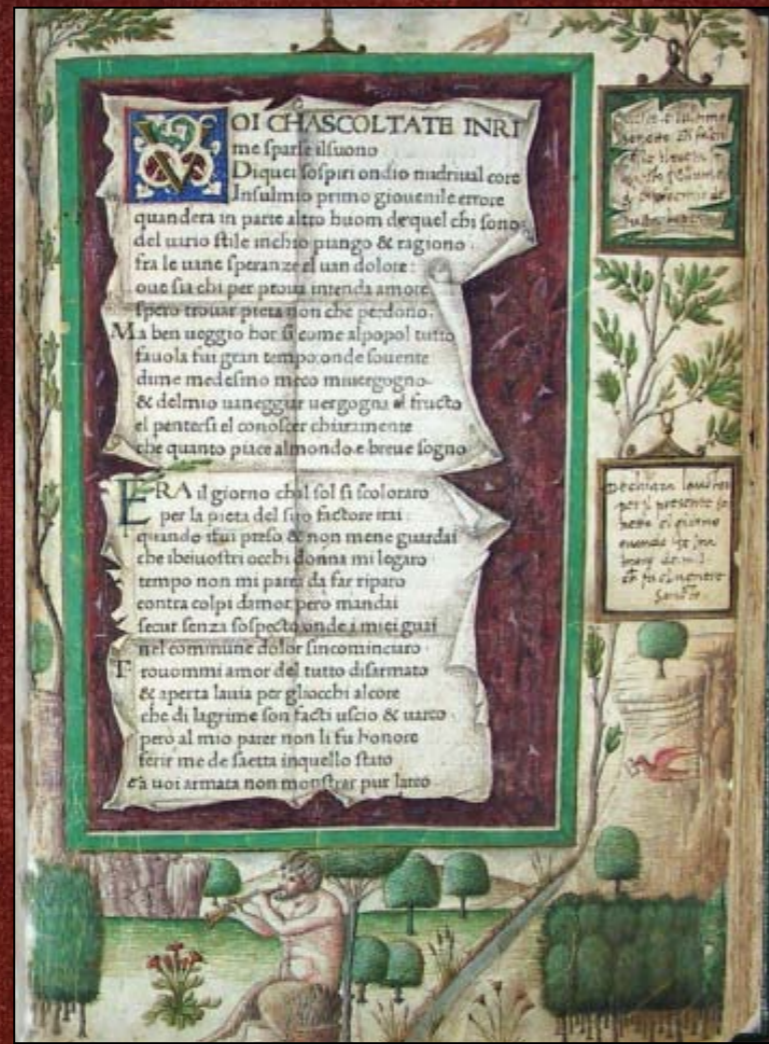 VOI CHASCOLTATE INRI
me sparse ilsuono
Diquei sospiri ondio nudriual core
Insulmio primo giouenile errore
quandera in parte altro huom dequel chi sono
del uario stile inchio piango & ragiono
fra le uane speranze el uan dolore:
oue sia chi per proua intenda amore
spero trouar pieta non che perdono.
Ma ben ueggio hor si come alpopol tutto
fauola fui gran tempo:onde souente
dime medesimo meco miuergogno
& delmio uaneggiar uergogna el fructo
el pentersi el conoscer chiaramente
che quanto piace almondo e breue sogno
ERA il giorno chal sol si scoloraro
per la pieta del suo factore irai
quando ifui preso & non mene guardai
che ibeiuostri occhi donna mi legaro
tempo non mi parea da far riparo
contra colpi damor pero mandai
secur senza sospecto onde i miei guai
nel commune dolor sincominciaro
Trouommi amor del tutto disarmato
& aperta lauia per gliocchi alcore
che di lagrime son facti uscio & uarco
pero al mio parer non li fu honore
ferir me de saetta inquello stato
& a uoi armata non monstrar pur larco
sonetto
&
Dechiara
per il presente
el giorno